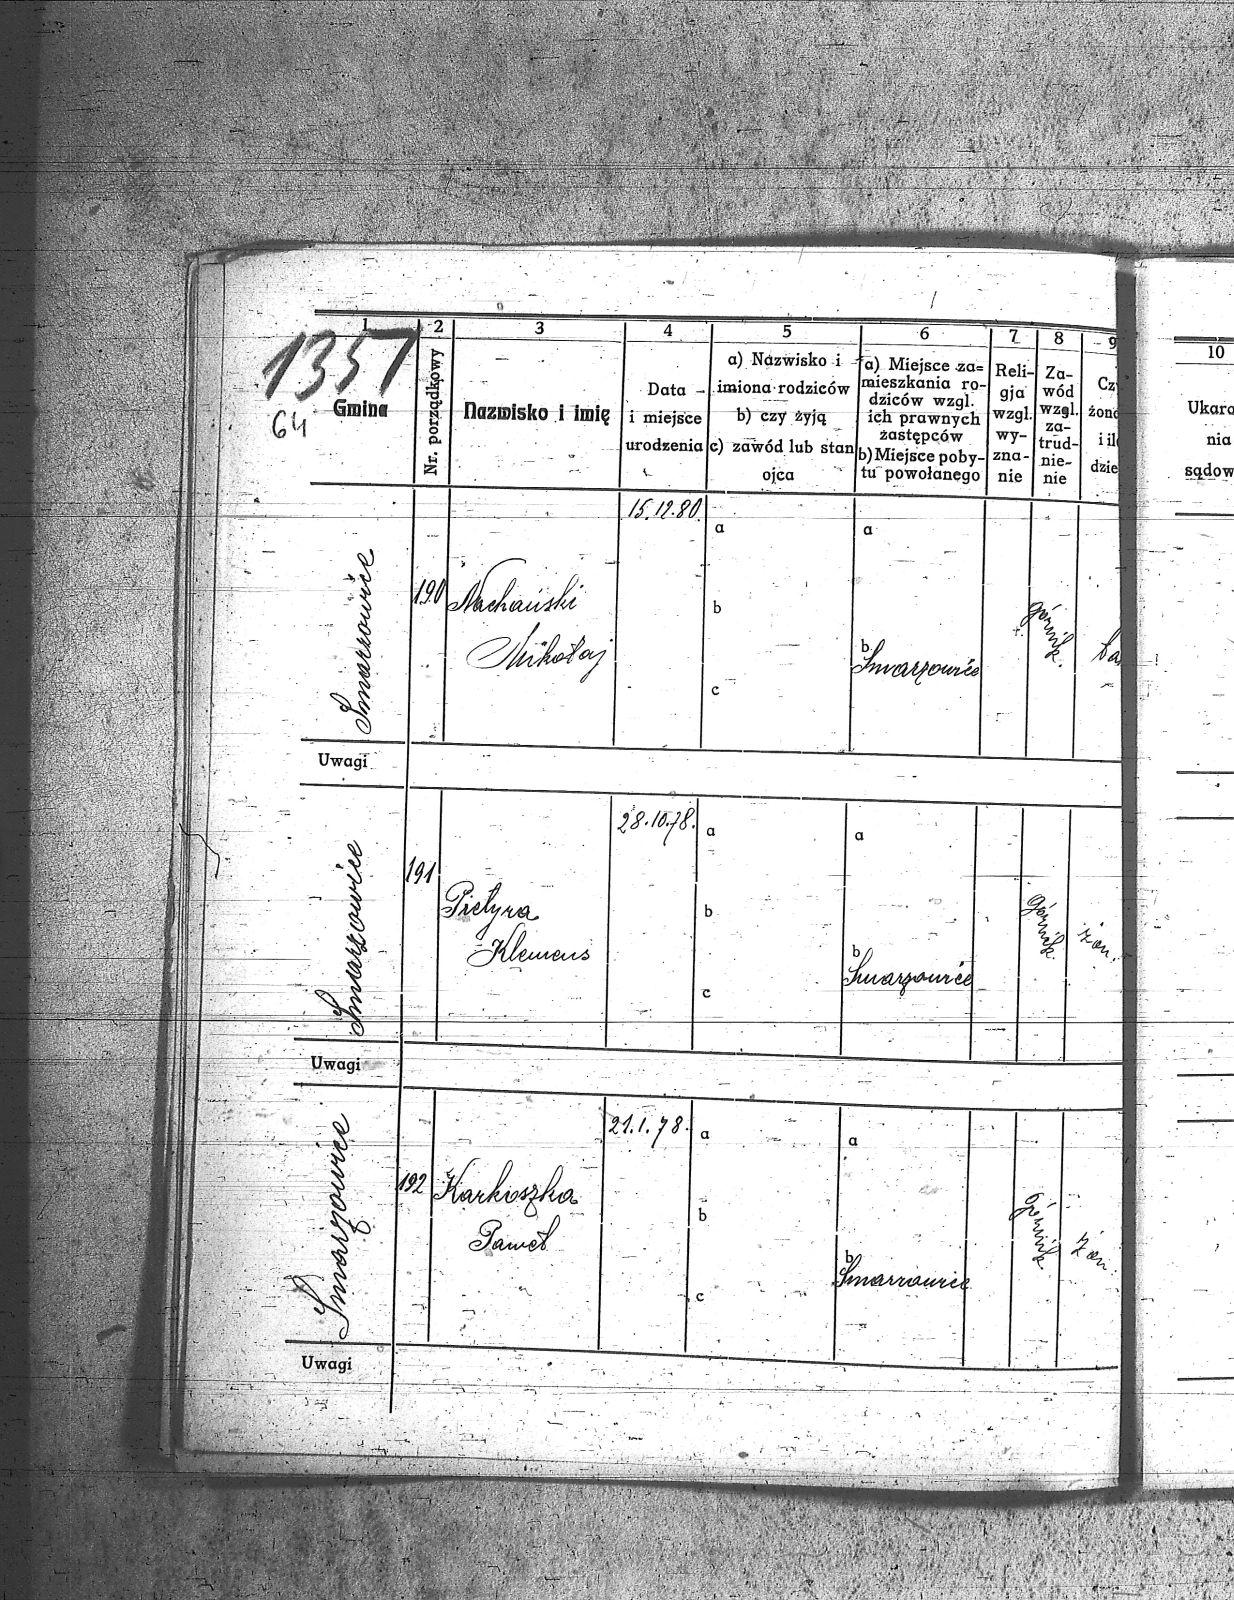 1357
64
1 2 3 4 5 6 7 8 9 10
Gmina
Nr. porządkowy
Nazwisko i imię
Data
i miejsce
urodzenia
a) Nazwisko i
imiona rodziców
b) czy żyją
c) zawód lub stan
ojca
a) Miejsce za=
mieszkania ro-
dziców wzgl.
ich prawnych
zastępców
b) Miejsce poby-
tu powołanego
Reli-
gja
wzgl.
wy-
zna-
nie
Za-
wód
wzgl.
za-
trud-
nie-
nie
Cz
żon
i il
dzie
Ukara
nia
sądow
Smarzowice
190
Mikołaj
15.12.80.
a
b
c
a
b
Smarzowice
górnik
Uwagi
Smarzowice
191
Pietyra
Klemens
28.10.78.
a
b
c
a
b
Smarzowice
górnik
żon.
Uwagi
Smarzowice
192
Karkoszka
Paweł
21.1.78.
a
b
c
a
b
Smarzowice
górnik
żon.
Uwagi